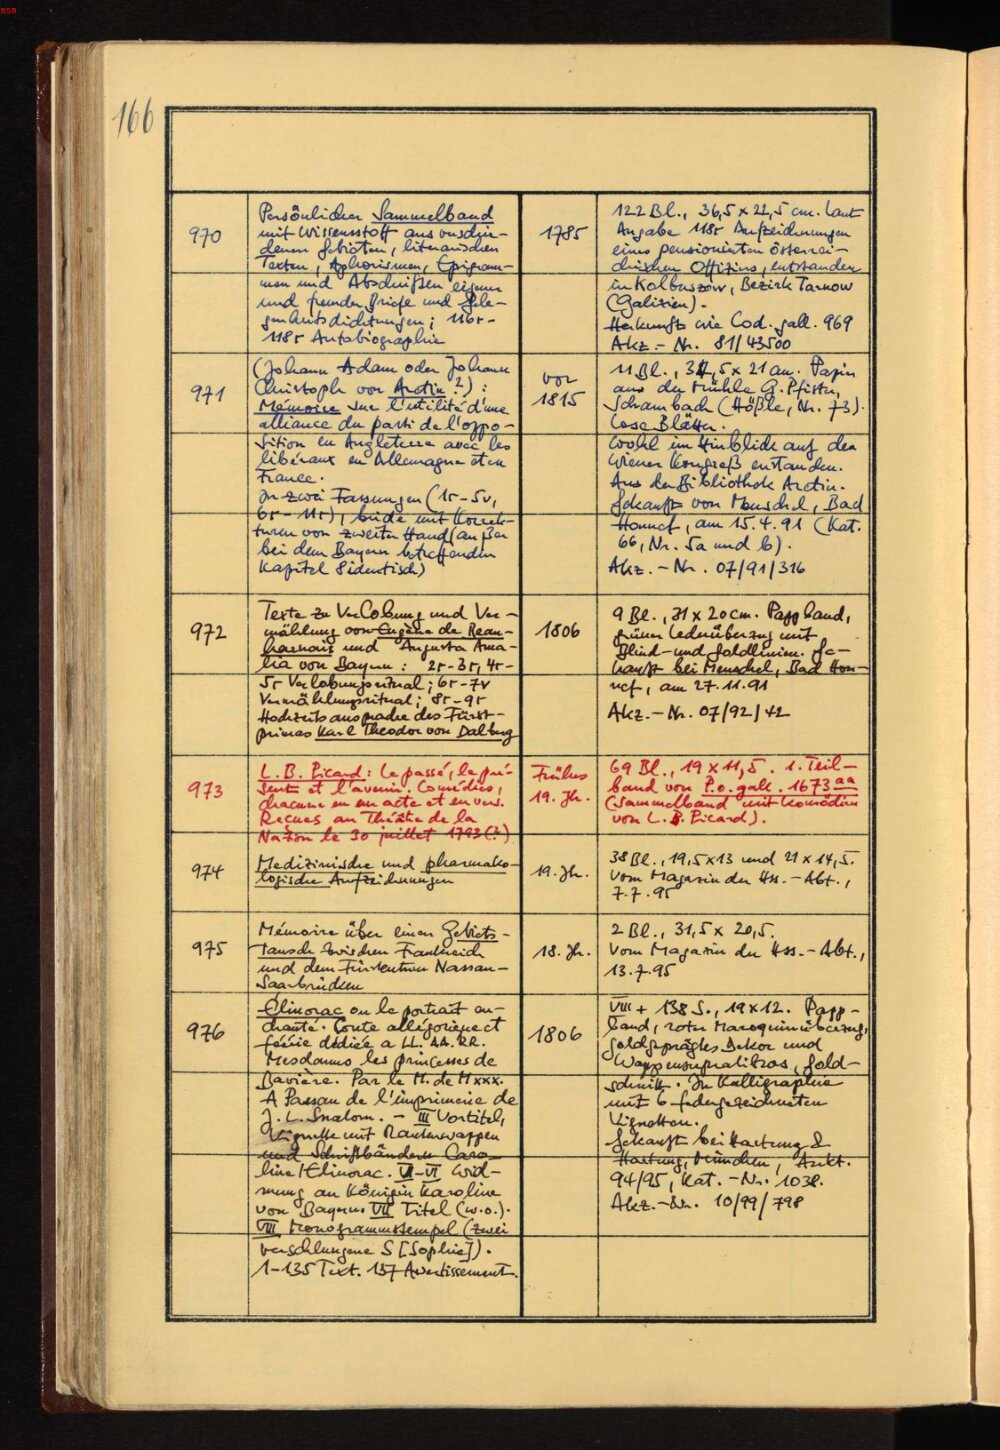 BSB
166
970
Persönlicher Sammelband
mit Wissensstoff aus verschie-
denen Gebieten, literarischen
Texten, Aphorismen, Epigram-
men und Abschriften eigener
und fremder Briefe und Gele-
genheitsdichtungen; 116r-
118r Autobiographie
1785
122 Bl., 36,5 x 22,5 cm. Laut
Angabe 118r Aufzeichnungen
eines pensionierten österrei-
chischen Offiziers, entstanden
in Kolbuszów, Bezirk Tarnow
(Galizien).
Herkunft wie Cod. gall. 969
Akz.-Nr. 81/43500
971
(Johann Adam oder Johann
Christoph von Aretin?):
Mémoire sur l'utilité d'une
alliance du parti de l'oppo-
sition en Angleterre avec les
libéraux en Allemagne et en
France.
In zwei Fassungen (1r-5v,
6r-11r), beide mit Korrek-
turen von zweiter Hand (außer
bei dem Bayern betreffenden
Kapitel 8 identisch)
vor
1815
11 Bl., 34,5 x 21 cm. Papier
aus der Mühle G. Pfister,
Schambach (Hößle, Nr. 73).
Lose Blätter.
Wohl im Hinblick auf den
Wiener Kongreß entstanden.
Aus der Bibliothek Aretin.
Gekauft von Menschel, Bad
Honnef, am 15.4.91 (Kat.
66, Nr. 5a und b).
Akz.-Nr. 07/91/316
972
Texte zu Verlobung und Ver-
mählung von Eugène de Beau-
harnais und Augusta Ama-
lia von Bayern: 2r-3r, 4r-
5r Verlobungsritual; 6r-7v
Vermählungsritual; 8r-9r
Hochzeitsansprache des Fürst-
primas Karl Theodor von Dalberg
1806
9 Bl., 31 x 20 cm. Pappband,
grüner Lederüberzug mit
Blind- und Goldlinien. Ge-
kauft bei Menschel, Bad Hon-
nef, am 27.11.91
Akz.-Nr. 07/92/42
973
L. B. Picard: Le passé, le pré-
sent et l'avenir. Comédies,
chacune en un acte et en vers.
Reçues au Théâtre de la
Nation le 30 juillet 1793(?)
Frühes
19. Jh.
69 Bl., 19 x 11,5. 1. Teil-
band von P.o.gall. 1673 aa
(Sammelband mit Komödien
von L. B. Picard).
974
Medizinische und pharmako-
logische Aufzeichnungen
19. Jh.
38 Bl., 19,5x13 und 21 x 14,5.
Vom Magazin der Hss.-Abt.,
7.7.95
975
Mémoire über einen Gebiets-
tausch zwischen Frankreich
und dem Fürstentum Nassau-
Saarbrücken
18. Jh.
2 Bl., 31,5 x 20,5.
Vom Magazin der Hss.-Abt.,
13.7.95
976
Élinorac ou le portrait en-
chanté. Conte allégorique et
féerie dédiée a LL. AA. RR.
Mesdames les princesses de
Bavière. Par le M. de Mxxx.
A Passau de l'imprimerie de
J. L.
III Vortitel,
Vignette mit Rautenwappen
und Schriftbändern Caro-
line / Elinorac. VI-VI Wid-
mung an Königin Karoline
von Bayern. VII Titel (w.o.).
VIII Monogrammstempel (zwei
verschlungene S [Sophie]).
1-135 Text. 137 Avertissement.
1806
VIII + 138 S., 19x12. Papp-
band, roter Maroquinüberzug,
goldgeprägtes Dekor und
Wappensupralibros, Gold-
schnitt. In Kalligraphie
mit 6 federgezeichneten
Vignetten.
Gekauft bei Hartung &
Hartung, München, Aukt.
94/95, Kat.-Nr. 1038.
Akz.-Nr. 10/99/798